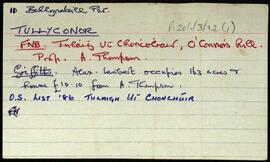 10 Ballynakill Par.
P.201/3/92 (1)
TULLYCONOR
FNB. Tulaig Uí Chonchobair, O'Connors Hill.
Prop. A. Thompson.
Griffith. Alex. Lambert occupies 163 acres &
house £10.10 from A. Thompson.
O.S. LIST '86 TULAIGH UÍ CHONCHÚIR